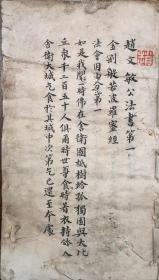 趙文敏公法書第一
金剛般若波羅蜜經
法會因由分第一
如是我聞一時佛在舍衛國祇樹給孤獨園與大比
丘衆千二百五十人俱爾時世尊食時著衣持鉢入
舍衛大城乞食於其城中次第乞已還至本處